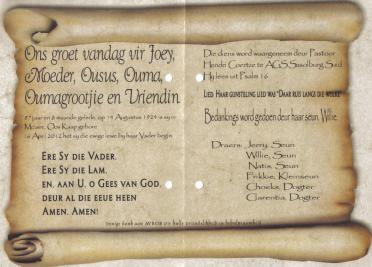 Ons groet vandag vir Joey,
Moeder, Ousus, Ouma,
Oumagrootjie en Vriendin
87 jaar en 8 maande gelede, op 14 Augustus 1924 is sy in
Oos Kaap gebore
16 April 2012 het sy die ewige lewe by haar Vader begin
Ere Sy die Vader,
Ere Sy die Lam,
en, aan U, o Gees van God,
deur al die eeue heen
Amen, Amen!
Die diens word waargeneem deur Pastoor
Hendri Coertze te AGS Sasolburg Suid
Hy lees uit Psalm 16
Lied Haar gunsteling lied was "Daar ruis langs die wolke"
Bedankings word gedoen deur haar seun, Willie.
Draers: Jerry, Seun
Willie, Seun
Natis, Seun
Frikkie, Kleinseun
Choeks, Dogter
Clarentia, Dogter
Innige dank aan AVBOB vir hulle